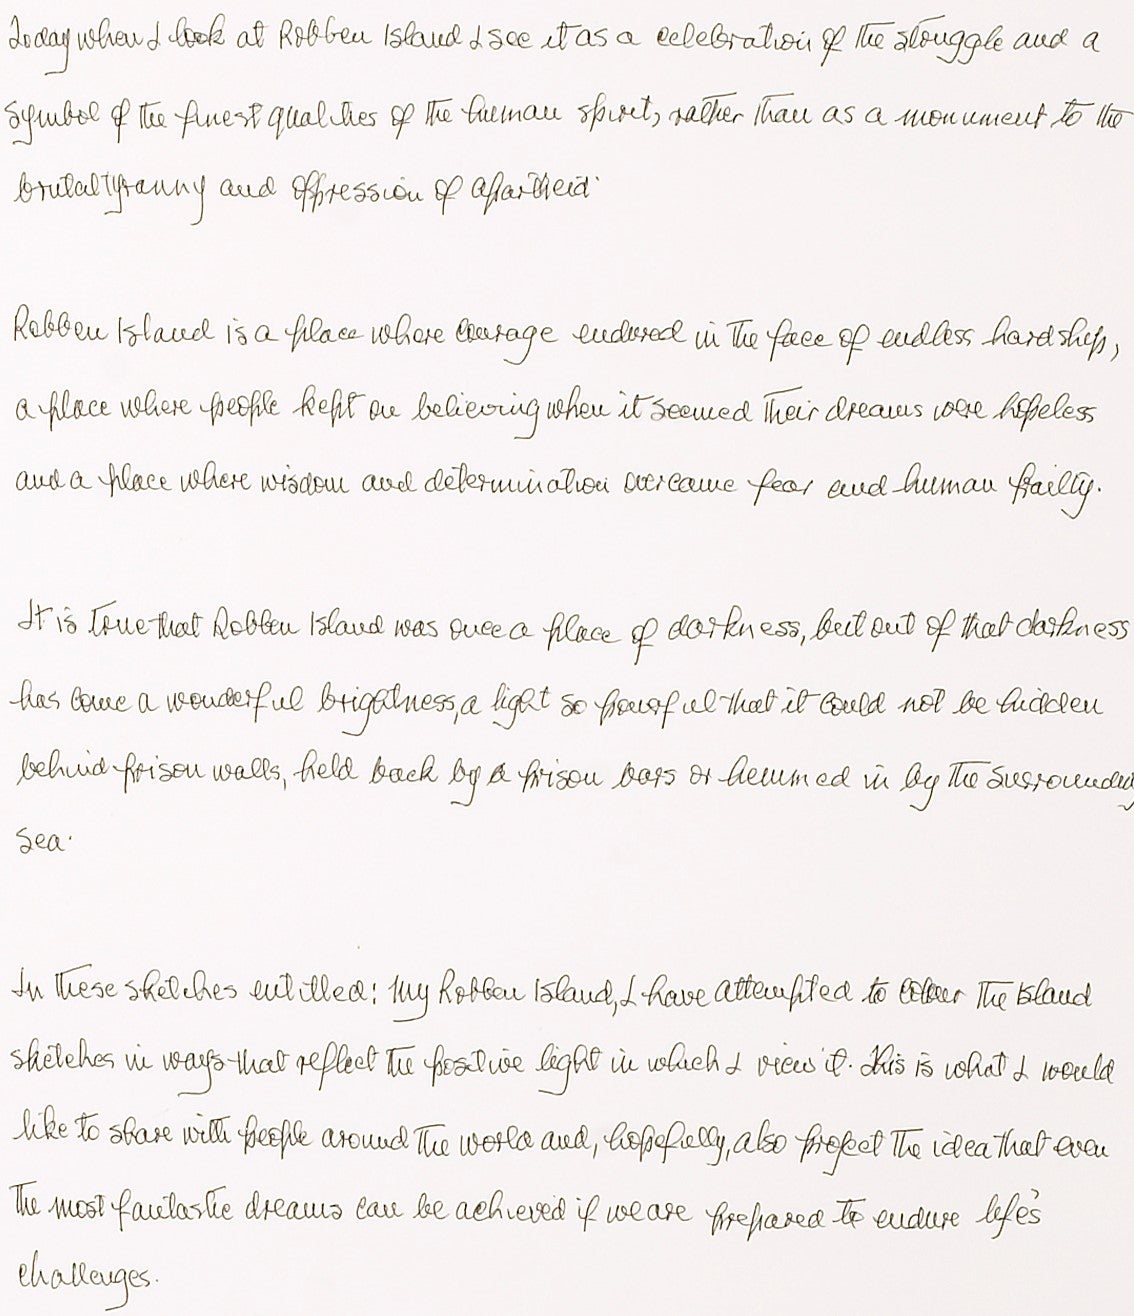 Today when I look at Robben Island I see it as a celebration of the struggle and a
symbol of the finest qualities of the human spirit, rather than as a monument to the
brutal tyranny and oppression of apartheid.
Robben Island is a place where courage endured in the face of endless hardship,
a place where people kept on believing when it seemed their dreams were hopeless
and a place where wisdom and determination overcame fear and human frailty.
It is true that Robben Island was once a place of darkness, but out of that darkness
has come a wonderful brightness, a light so powerful that it could not be hidden
behind prison walls, held back by a prison bars or hemmed in by the surrounding
sea.
In these sketches entitled: My Robben Island, I have attempted to colour the Island
sketches in ways that reflect the positive light in which I view it. This is what I would
like to share with people around the world and, hopefully, also project the idea that even
the most fantastic dreams can be achieved if we are prepared to endure life's
challenges.